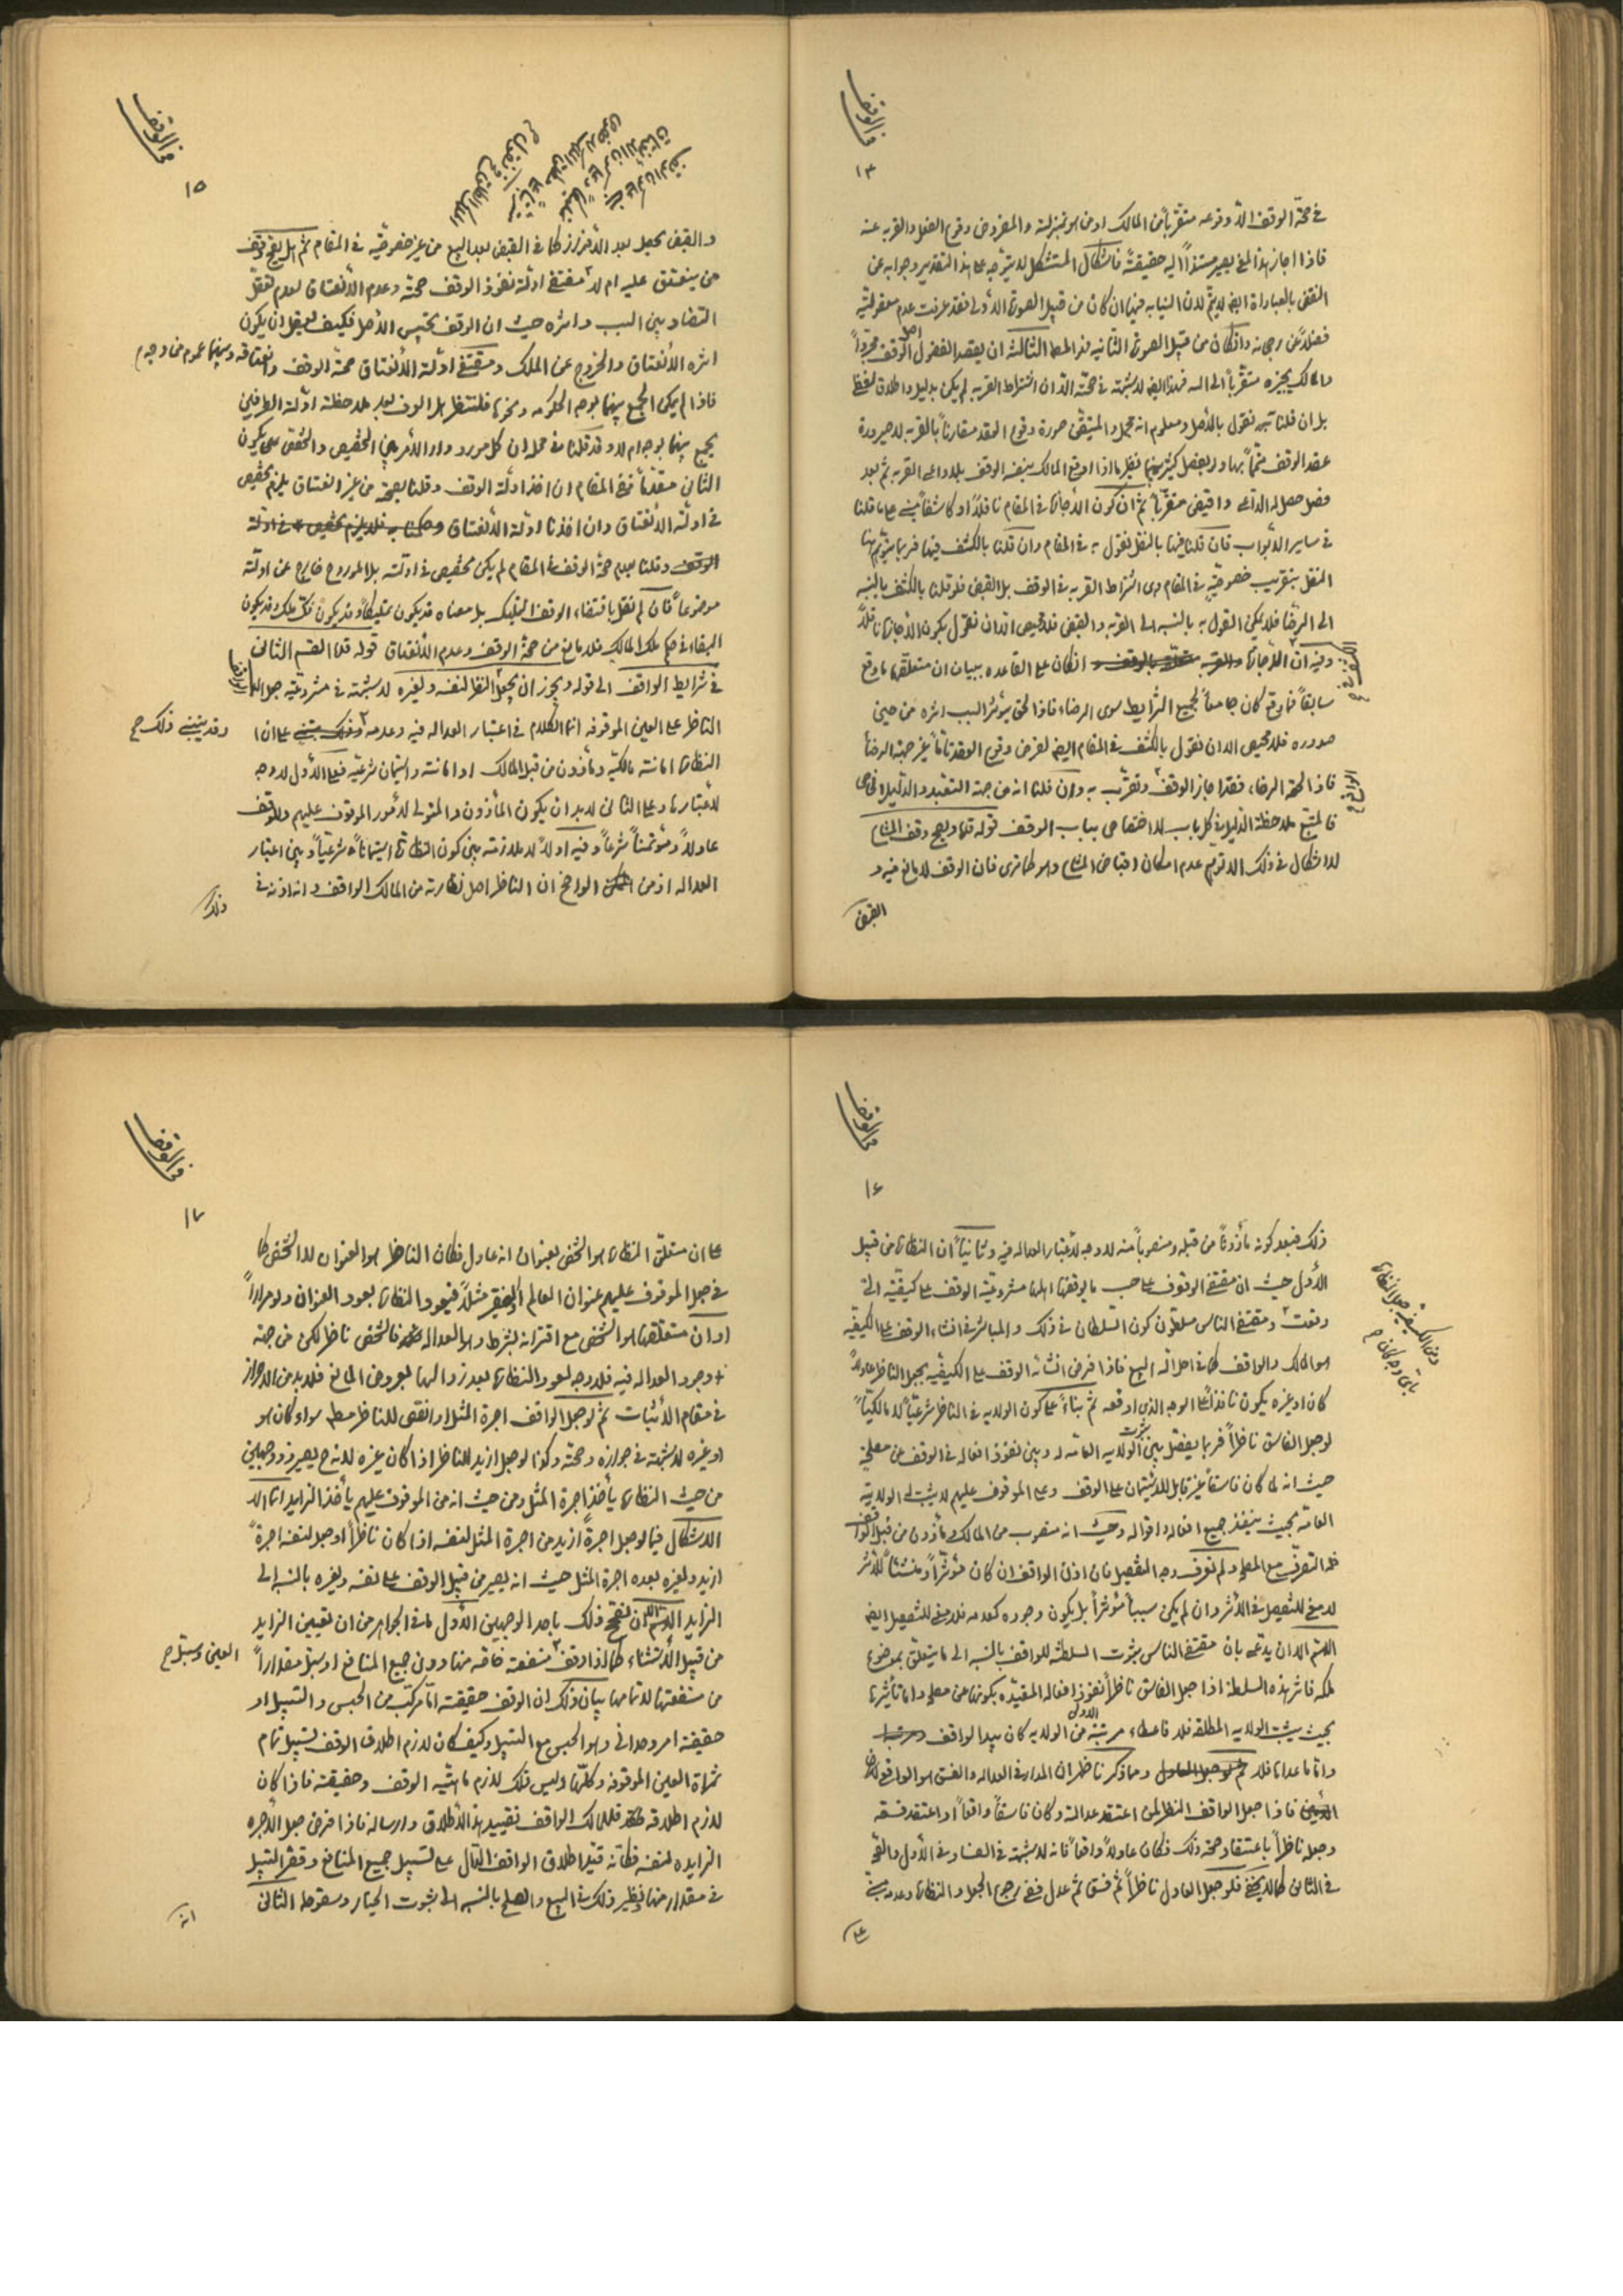 في الوقف
١٤
في صحّة الوقف الّا وقوعه متقرّباً من المالك او من هو بمنزلته والمفروض وقوع الفعل والقربه عنه
فاذا اجاز هذا المعنى يصير مستنداً اليه حقيقةً فاشكال المستشكل لا يتوجّه على هذا التقدير وجوابه عن
النقض بالعبادات ايضا لا يتمّ لانّ النيابه فيها ان كان من قبيل الصورة الاولى فقد عرفت عدم معقوليّته
فضلاً عن وان كان من قبيل الصورة الثانيه الثالثه ان يقصد الفضولى اصل الوقف مجرّداً
والمالك يجيزه متقرّباً الى الله فهذا ايضا لا شبهة في صحّته الّا ان اشتراط القربه لم يكن بدليل واطلاق لفظى
بل ان قلنا به نقول بالاصل ومعلوم انه مجمل والمتيقّن صورة وقوع العقد مقارناً بالقربه لا صيرورة
عقد الوقف بها ولو بفصل كثير بينهما نظير ما اذا اوقع المالك بنفسه الوقف بلا داعى القربه ثمّ بعد
فصل حصل له الداعى واقبض متقرّباً ثمّ انّ كون الاجازة في المقام ناقلاً او كاشفاً مبنى على ما قلنا
في ساير الابواب فان قلنا فيها بالنقل نقول به في المقام وان قلنا بالكشف فيها فربما يتوهّم هنا
النقل بتقريب خصوصيّةٍ في المقام وهى اشتراط القربه في الوقف بل القبض فلو قلنا بالكشف بالنسبه
الى الرضا فلا يمكن القول به بالنسبه الى القربه والقبض فلا محيص الّا ان نقول بكون الاجازة ناقلاً
وفيه انّ الاجازة ان كان على القاعده ببيان ان متعلّقها ما وقع
سابقاً فما وقع كان جامعاً لجميع الشرايط سوى الرضاء فاذا لحق يؤثر السبب اثره من حين
صدوره فلا محيص الّا ان نقول بالكشف في المقام ايضا لفرض وقوع العقد تامّاً غير جهة الرضا
فاذا لحقه الرضاء فقد اجاز الوقف وتقرّب به وان قلنا انه من جهة التعبّد والدليل الخاص
فالمتبع ملاحظة الدليل في كل باب لا اختصاص بباب الوقف قوله قدّه ويصح وقف المشاع
لا اشكال في ذلك الّا توهّم عدم امكان اقباض المشاع وهو كما ترى فان الوقف لا مانع فيه و
القبض
في الوقف
١٥
والقبض يحصل بعد الافراز كما في القبض بعد البيع من غير خصوصيّة في المقام ثمّ هل يصحّ وقف
من ينعتق عليه ام لا مقتضى ادلّة نفوذ الوقف صحّته وعدم الانعتاق لعدم تعقّل
التضاد بين السبب واثره حيث ان الوقف تحبيس الاصل فكيف يعقل ان يكون
اثره الانعتاق والخروج عن الملك ومقتضى ادلّة الانعتاق صحّة الوقف وانعتاقه وبينهما عموم من وجه
فاذا لم يمكن الجمع بينهما بوجه الحكومه ونحوها فلننظر هل العرف بعد ملاحظة ادلّة الطرفين
يجمع بينهما بوجه ام لا وقد قلنا في محله ان كل مورد دار الأمر بين التخصيص والتخصّص يكون
الثانى مقدّماً ففى المقام ان اخذ ادلّة الوقف وقلنا بصحّته من غير انعتاق يلزم تخصيص
في ادلّة الانعتاق وان اخذنا ادلّة الانعتاق
وقلنا بعدم صحّة الوقف في المقام لم يكن تخصيص في ادلّته بل المورد خارج عن ادلّته
موضوعاً فان لم نقل باقتضاء الوقف التمليك بل معناه قد يكون تمليكاً وقد يكون فكّ ملك وقد يكون
البقاء في ملك المالك فلا مانع من صحّة الوقف وعدم الانعتاق قوله قدّه القسم الثانى
في شرايط الواقف الى قوله ويجوز ان يجعل النظر لنفسه ولغيره لا شبهة في مشروعيّة جعل
الناظر على العين الموقوفه انما الكلام في اعتبار العداله فيه وعدمه وقد يبتنى ذلك على ان
النظارة امانته مالكيّة ومأذون من قبل المالك او امانته واستيمان شرعيّة فعلى الاوّل لا وجه
لاعتبارها وعلى الثانى لا بد ان يكون المأذون والمتولّى لامور الموقوف عليهم والوقف
عادلاً ومؤتمناً شرعاً وفيه اولاً لا ملازمة بين كون النظارة استيماناً شرعيّاً وبين اعتبار
العداله اذ من الواضح ان الناظر اصل نظارته من المالك الواقف وانه اذنه في
ذلك
في الوقف
١٦
ذلك فبعد كونه مأذوناً من قبله ومنصوباً منه لا وجه لاعتبار العداله فيه وثانياً ان النظارة من قبيل
الأول حيث ان مقتضى الوقوف على حسب ما يوقفها اهلها مشروعيّة الوقف على كيفيّته الّتى
وقعت ومقتضى الناس مسلّطون كون السلطان في ذلك والمباشر في انشاء الوقف على الكيفيّه
هو المالك والواقف كما في احلّ الله البيع فاذا فرض انشائه الوقف على الكيفيّه بجعل الناظر عادلاً
كان او غيره يكون نافذاً على الوجه الذى اوقعه ثمّ بناءً على كون الولايه في الناظر شرعيّاً لا مالكيّاً
لو جعل الفاسق ناظراً فربما يفصّل بين ثبوت الولايه العامّه له وبين نفوذ افعاله في الوقف عن مصلحة
حيث انه لمّا كان فاسقاً غير قابل للاستيمان على الوقف وعلى الموقوف عليهم لا يثبت له الولاية
العامّه بحيث ينفذ جميع افعاله واقواله وحيث انه منصوب من المالك مأذون من قبل الواقف
فله التصرّف مع المصلحة ولم نعرف وجه التفصيل فان اذن الواقف ان كان مؤثّراً ومنشئاً للأثر
لا معنى للتفصيل في الأثر وان لم يكن سبباً مؤثراً بل يكون وجوده كعدمه فلا معنى للتفصيل ايضا
اللهم الّا ان يدّعى بان مقتضى الناس ثبوت السلطنه للواقف بالنسبه الى ما يتعلّق بموضوع
ملكه فاثر هذه السلطنة اذا جعل الفاسق ناظراً نفوذ افعاله المقيّده بكونها عن مصلحه وامّا تأثيرها
بحيث يثبت الولايه المطلقه فلا فاعطاء مرتبته من الولايه كان بيد الواقف
وامّا ما عداها فلا وممّا ذكر ناظر ان المدار في العداله والفسق هو الواقع لا
فاذا جعل الواقف النظر لمن اعتقد عدالته وكان فاسقاً واقعاً او اعتقد فسقه
وجعله ناظراً باعتقاد صحّة ذلك فكان عادلاً واقعاً فانه لا شبهة في الفساد في الاوّل والصحّة
في الثانى كما لا يخفى فلو جعل العادل ناظراً ثمّ فسق ثمّ عدل ففى رجوع الجعل والنظارة وعدمه مبنى
على
في الوقف
١٧
على ان متعلّق النظارة هو الشخص بعنوان انه عادل فكان الناظر هو العنوان لا الشخص كما
في جعل الموقوف عليهم عنوان العالم او الفقير مثلاً فيعود النظارة بعود العنوان ولو مراراً
او ان متعلّقها هو الشخص مع اقترانه بشرط وهو العداله فالشخص ناظر لكن من جهة
وجود العداله فيه فلا وجه لعود النظارة بعد زوالها بعروض المانع فلا بد من الاحراز
في مقام الاثبات ثمّ لو جعل الواقف اجرة المثل او انقص للناظر مطلقا سواء كان هو
او غيره لا شبهة في جوازه وصحّته وكذا لو جعل ازيد للناظر اذا كان غيره لانه ح يصير ذو وجهين
من حيث النظارة يأخذ اجرة المثل ومن حيث انه من الموقوف عليهم يأخذ الزايد انما الا
الاشكال فيما لو جعل اجرةً ازيد من اجرة المثل لنفسه اذا كان ناظراً او جعل لنفسه اجرةً
ازيد ولغيره بعده اجرة المثل حيث انه يصير من قبيل الوقف على نفسه وغيره بالنسبه الى
الزايد اللهم الّا ان نصحّح ذلك باحد الوجهين الاوّل ما في الجواهر من ان تعيين الزايد
من قبيل الاستثناء كما اذا وقف العين وسبّل منفعته خاصّه منها دون جميع المنافع او سبّل مقداراً
من منفعتها لا تمامها بيان ذلك ان الوقف حقيقته امّا مركّب من الحبس والتسبيل او
حقيقته امر وحدانى وهو الحبس مع التسبيل وكيف كان لازم اطلاق الوقف تسبيل تمام
ثمراة العين الموقوفه وكلّها وليس ذلك لازم ماهيّة الوقف وحقيقته فاذا كان
لازم اطلاقه فللمالك الواقف تقييد هذا الاطلاق وارساله فاذا فرض جعل الاجره
الزايده لنفسه فكانه قيّد اطلاق الواقف الدّال على تسبيل جميع المنافع وقصّر التسبيل
في مقدار منها نظير ذلك في البيع والصلح بالنسبه الى ثبوت الخيار وسقوطه الثانى
انه